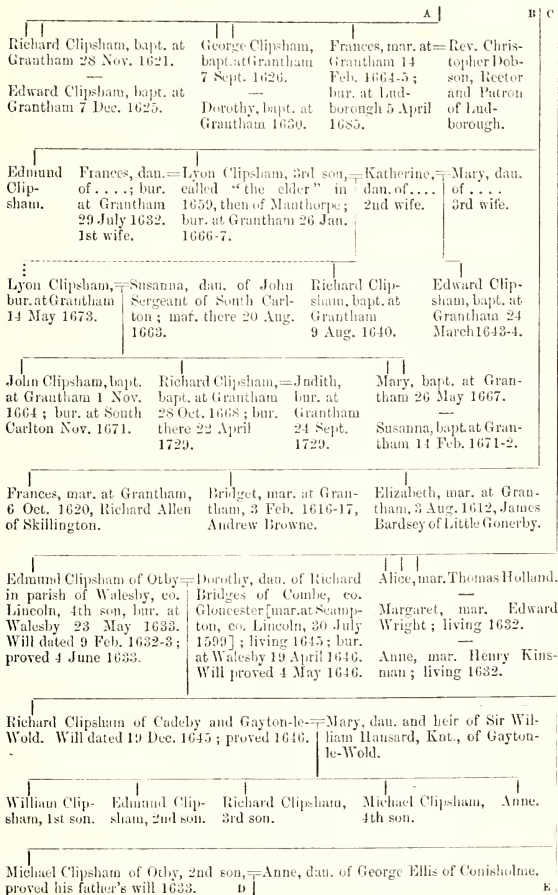 A B C
Richard Clipsham, bapt. at
Grantham 28 Nov. 1621.
—
Edward Clipsham, bapt. at
Grantham 7 Dec. 1625.
George Clipsham,
bapt. at Grantham
7 Sept. 1626.
—
Dorothy, bapt. at
Grantham 1630.
Frances, mar. at=
Grantham 14
Feb. 1664-5;
bur. at Lud-
borough 5 April
1685.
Rev. Chris-
topher Dob-
son, Rector
and Patron
of Lud-
borough.
Edmund
Clip-
sham.
Frances, dau.=
of . . . .; bur.
at Grantham
29 July 1632.
1st wife.
Lyon Clipsham, 3rd son,=
called "the elder" in
1659, then of Manthorpe;
bur. at Grantham 26 Jan.
1666-7.
Katherine,=
dau. of . . . .
2nd wife.
Mary, dau.
of . . . .
3rd wife.
Lyon Clipsham,=
bur. at Grantham
14 May 1673.
Susanna, dau. of John
Sergeant of South Carl-
ton; mar. there 20 Aug.
1663.
Richard Clip-
sham, bapt. at
Grantham
9 Aug. 1640.
Edward Clip-
sham, bapt. at
Grantham 24
March 1643-4.
John Clipsham, bapt.
at Grantham 1 Nov.
1664; bur. at South
Carlton Nov. 1671.
Richard Clipsham,=
bapt. at Grantham
28 Oct. 1668; bur.
there 22 April
1729.
Judith,
bur. at
Grantham
24 Sept.
1729.
Mary, bapt. at Gran-
tham 26 May 1667.
—
Susanna, bapt. at Gran-
tham 14 Feb. 1671-2.
Frances, mar. at Grantham,
6 Oct. 1620, Richard Allen
of Skillington.
Bridget, mar. at Gran-
tham, 3 Feb. 1616-17,
Andrew Browne.
Elizabeth, mar. at Gran-
tham, 3 Aug. 1612, James
Bardsey of Little Gonerby.
Edmund Clipsham of Otby=
in parish of Walesby, co.
Lincoln, 4th son, bur. at
Walesby 23 May 1633.
Will dated 9 Feb. 1632-3;
proved 4 June 1633.
Dorothy, dau. of Richard
Bridges of Combe, co.
Gloucester [mar. at Scamp-
ton, co. Lincoln, 30 July
1599]; living 1645; bur.
at Walesby 19 April 1646.
Will proved 4 May 1646.
Alice, mar. Thomas Holland.
—
Margaret, mar. Edward
Wright; living 1632.
—
Anne, mar. Henry Kins-
man; living 1632.
Richard Clipsham of Cadeby and Gayton-le-=
Wold. Will dated 19 Dec. 1645; proved 1646.
Mary, dau. and heir of Sir Wil-
liam Hansard, Knt., of Gayton-
le-Wold.
William Clip-
sham, 1st son.
Edmund Clip-
sham, 2nd son.
Richard Clipsham,
3rd son.
Michael Clipsham,
4th son.
Anne.
Michael Clipsham of Otby, 2nd son,=Anne, dau. of George Ellis of Conisholme.
proved his father's will 1633. D E